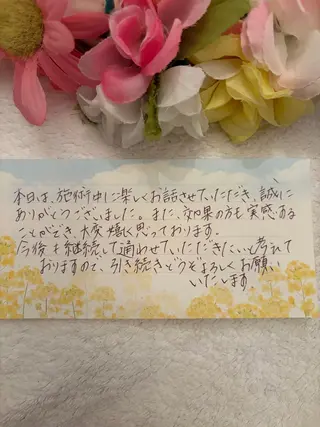 本日は、施術中に楽しくお話させていただき、誠に
ありがとうございました。また、効果の方も実感する
ことができ、大変嬉しく思っております。
今後も継続して通わせていただきたいと考えて
おりますので、引き続きどうぞよろしくお願い
いたします。